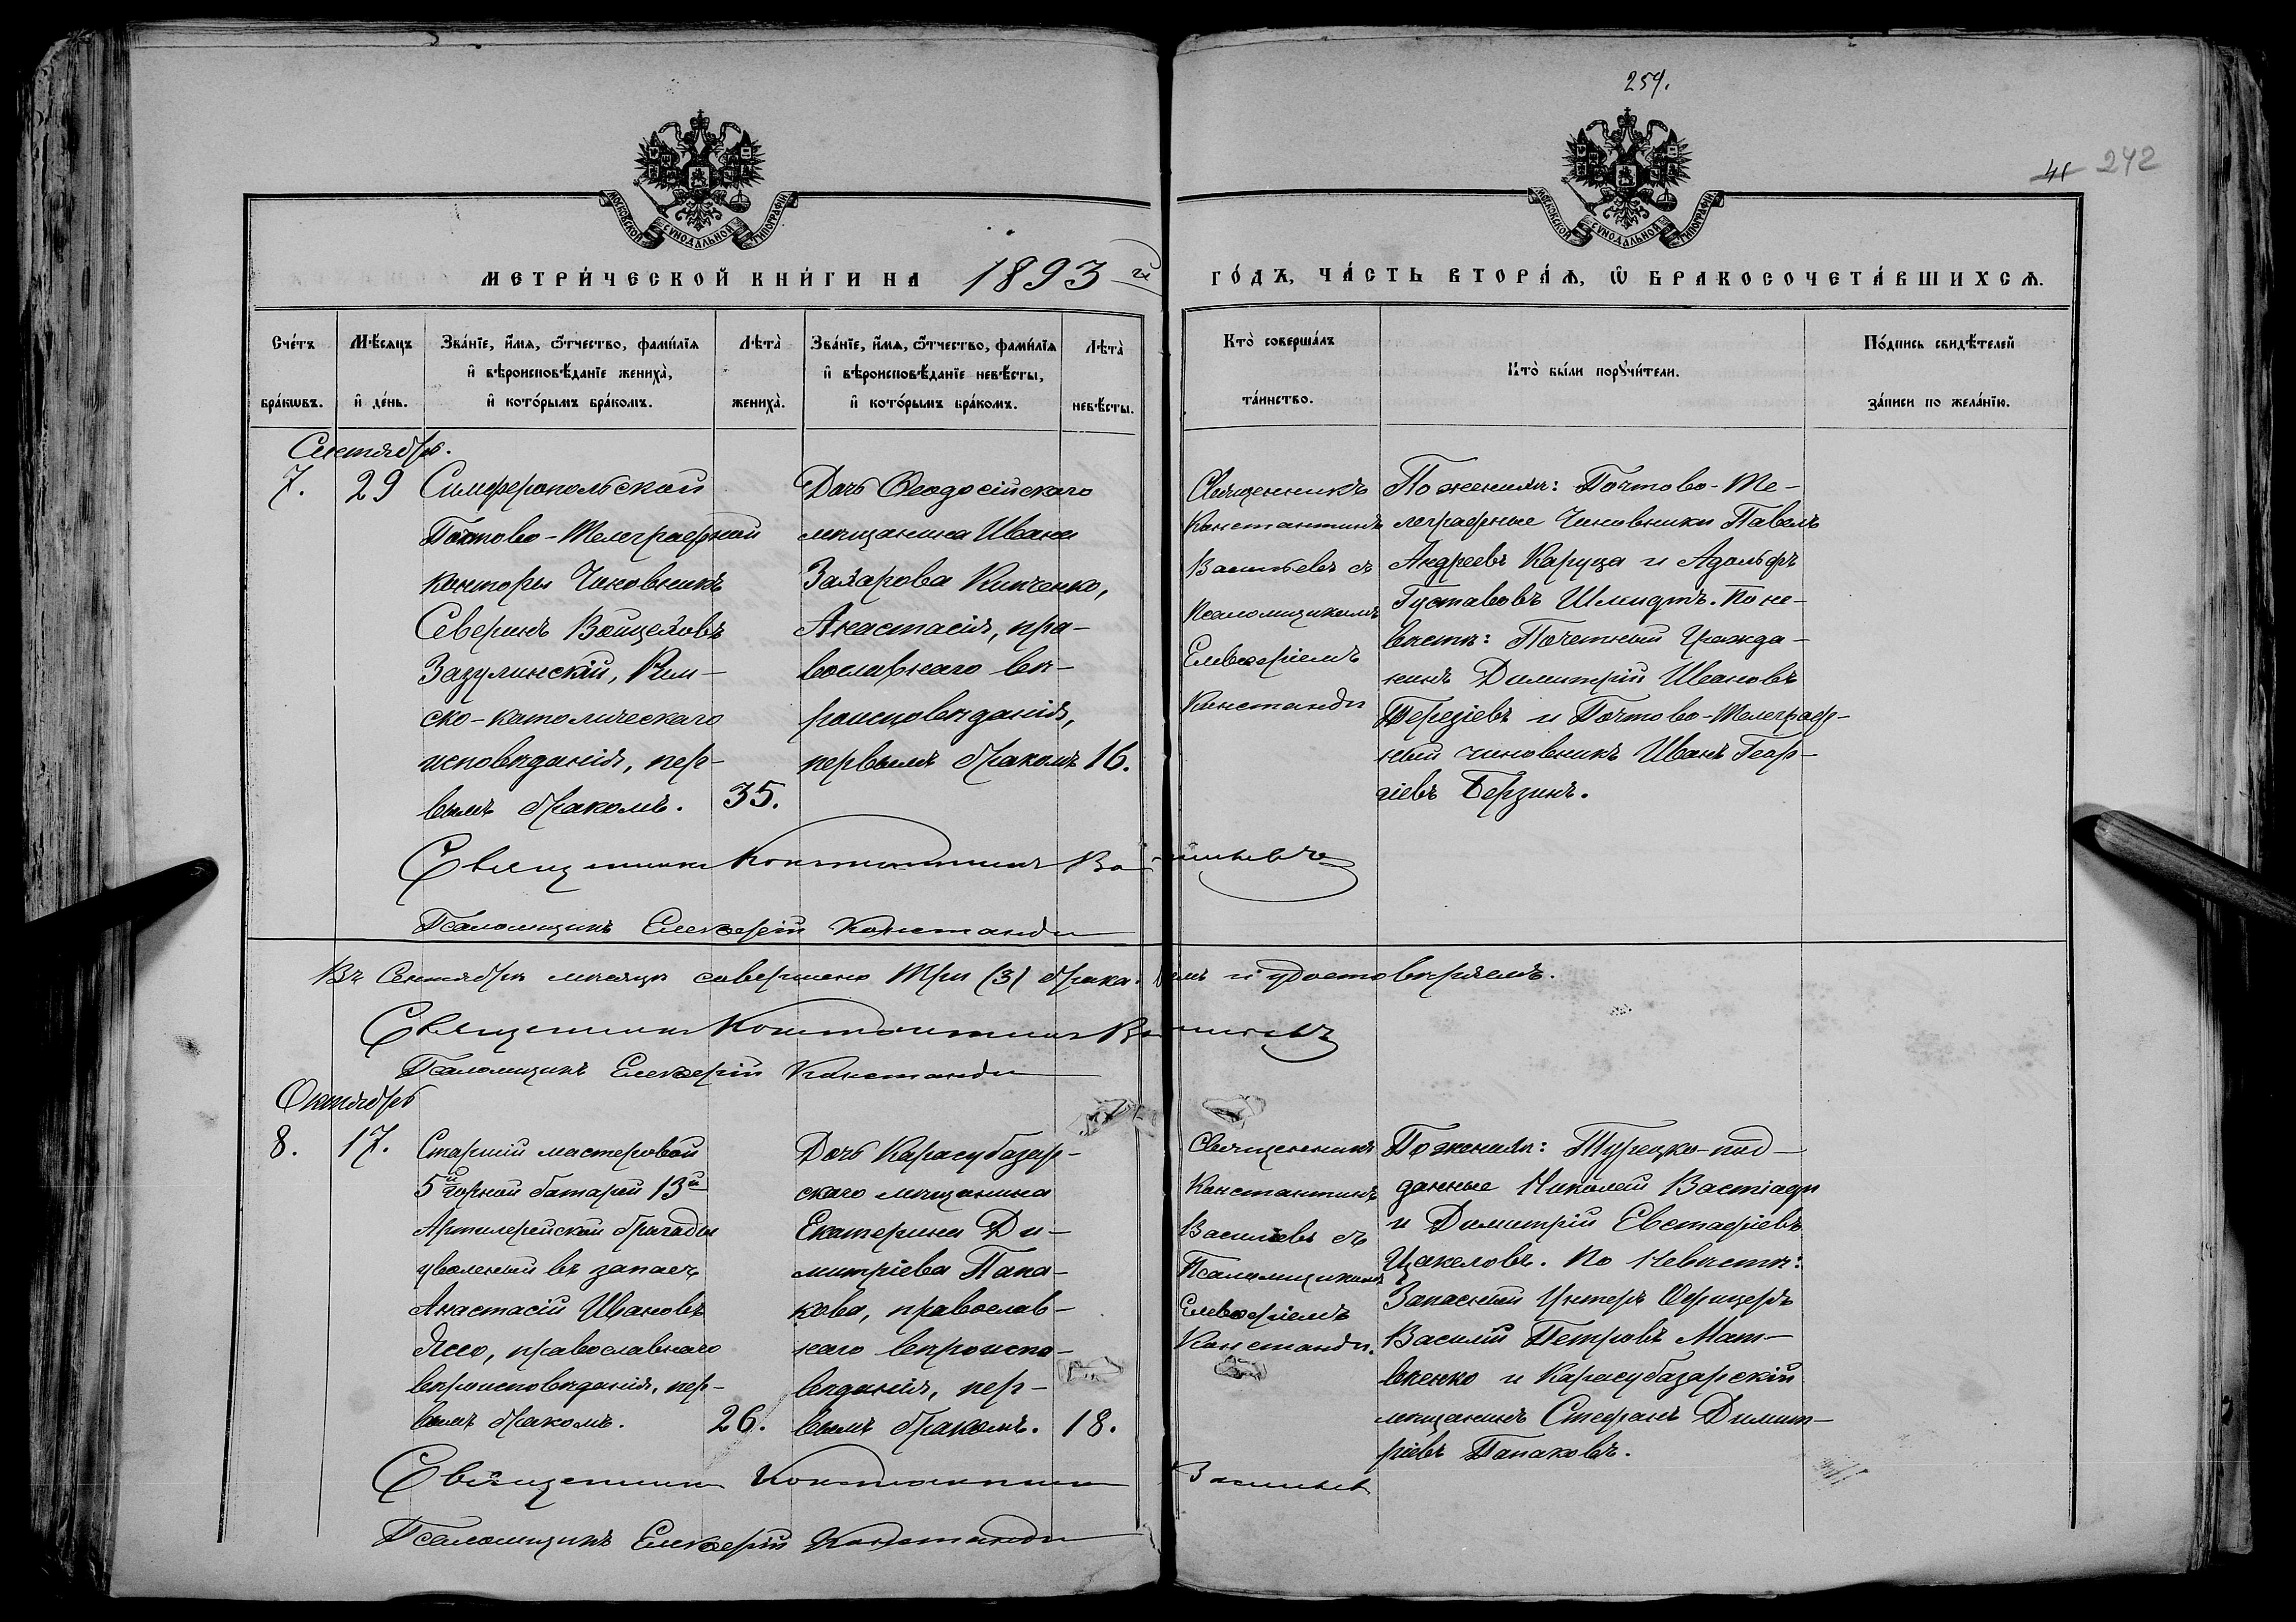 254.
41 242
МОСКОВСКОЙ СѴНОДАЛЬНОЙ ТИПОГРАФІИ
МОСКОВСКОЙ СѴНОДАЛЬНОЙ ТИПОГРАФІИ
МЕТРИ́ЧЕСКОЙ КНИ́ГИ НА 1893 й
ГО́ДЪ, ЧА́СТЬ ВТОРА́Ѧ, Ѡ҆ БРАКОСОЧЕТА́ВШИХСѦ.
Сче́тъ бра́кѡвъ.
Мѣ́сяцъ и҆ де́нь.
Зва́нїе, и҆́мѧ, ѻ҆́тчество, фами́лїѧ
и҆ вѣроисповѣ́данїе жениха̀,
и҆ кото́рымъ бра́комъ.
Лѣта̀ жениха̀.
Зва́нїе, и҆́мѧ, ѻ҆́тчество, фами́лїѧ
и҆ вѣроисповѣ́данїе невѣ́сты,
и҆ кото́рымъ бра́комъ.
Лѣта̀ невѣ́сты.
Кто̀ соверша́лъ
та́инство.
Кто̀ бы́ли порꙋчи́тели.
По́дпись свидѣ́телей
за́писи по жела́нїю.
Сентябрь.
7.
29
Симферопольской
Почтово-Телеграфной
конторы Чиновникъ
Северинъ Войцеховъ
Зазулинскій, Рим-
ско-католическаго
исповѣданія, пер-
вымъ бракомъ.
35.
Дочь Ѳеодосійскаго
мѣщанина Ивана
Захарова Кипченко,
Анастасія, пра-
вославнаго вѣ-
роисповѣданія,
первымъ бракомъ
16.
Священникъ
Константинъ
Васильевъ съ
Псаломщикомъ
Елевѳеріемъ
Констанди
По женихѣ: Почтово-Те-
леграфные Чиновники Павелъ
Андреевъ Каруза и Адольфъ
Густавовъ Шмидтъ. По не-
вѣстѣ: Почетный Гражда-
нинъ Димитрій Ивановъ
Терезіевъ и Почтово-Телеграф-
ный чиновникъ Иванъ Геор-
гіевъ Берзинъ.
Священникъ Константинъ Васильевъ
Псаломщикъ Елевѳерій Констанди
Въ Сентябрѣ мѣсяцѣ совершено Три (3) брака. и удостовѣряемъ.
Священникъ Константинъ Васильевъ
Псаломщикъ Елевѳерій Констанди
Октябрь
8.
17.
Старшій мастеровой
5й горной батареи 13й
Артилерійской бригады
уволенный въ запасъ
Анастасій Ивановъ
Яссо, православнаго
вѣроисповѣданія, пер-
вымъ бракомъ.
26.
Дочь Карасубазар-
скаго мѣщанина
Екатерина Ди-
митріева Папа-
кова, православ-
наго вѣроиспо-
вѣданія, пер-
вымъ бракомъ.
18.
Священникъ
Константинъ
Васильевъ съ
Псаломщикомъ
Елевѳеріемъ
Констанди.
По женихѣ: Турецко-под-
данные Николай Вастіади
и Димитрій Евстафіевъ
Цакеловъ. По Невѣстѣ:
Запасный Унтеръ Офицеръ
Василій Петровъ Мат-
вѣенко и Карасубазарскій
мѣщанинъ Стефанъ Димит-
ріевъ Папаковъ.
Священникъ Константинъ Васильев
Псаломщикъ Елевѳерій Констанди